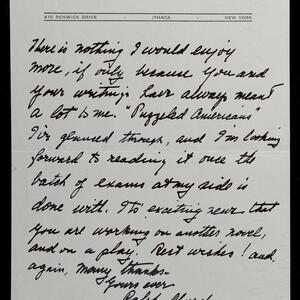 410 RENWICK DRIVE · ITHACA · NEW YORK
There is nothing I would enjoy
more, if only because you and
your writings have always meant
a lot to me. "Puzzeled Americans"
I've glanced through, and I'm looking
forward to reading it once the
batch of exams at my side is
done with. It's exciting news that
you are working on another novel,
and on a play. Best wishes! and,
again, many thanks—
Yours ever
Ralph